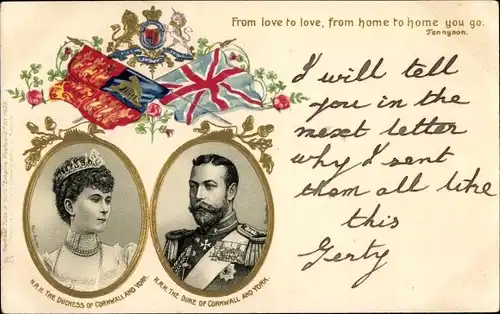 From love to love, from home to home you go.
Tennyson.
I will tell
you in the
next letter
why I sent
them all like
this
Gerty
H.R.H. THE DUCHESS OF CORNWALL AND YORK.
H.R.H. THE DUKE OF CORNWALL AND YORK.